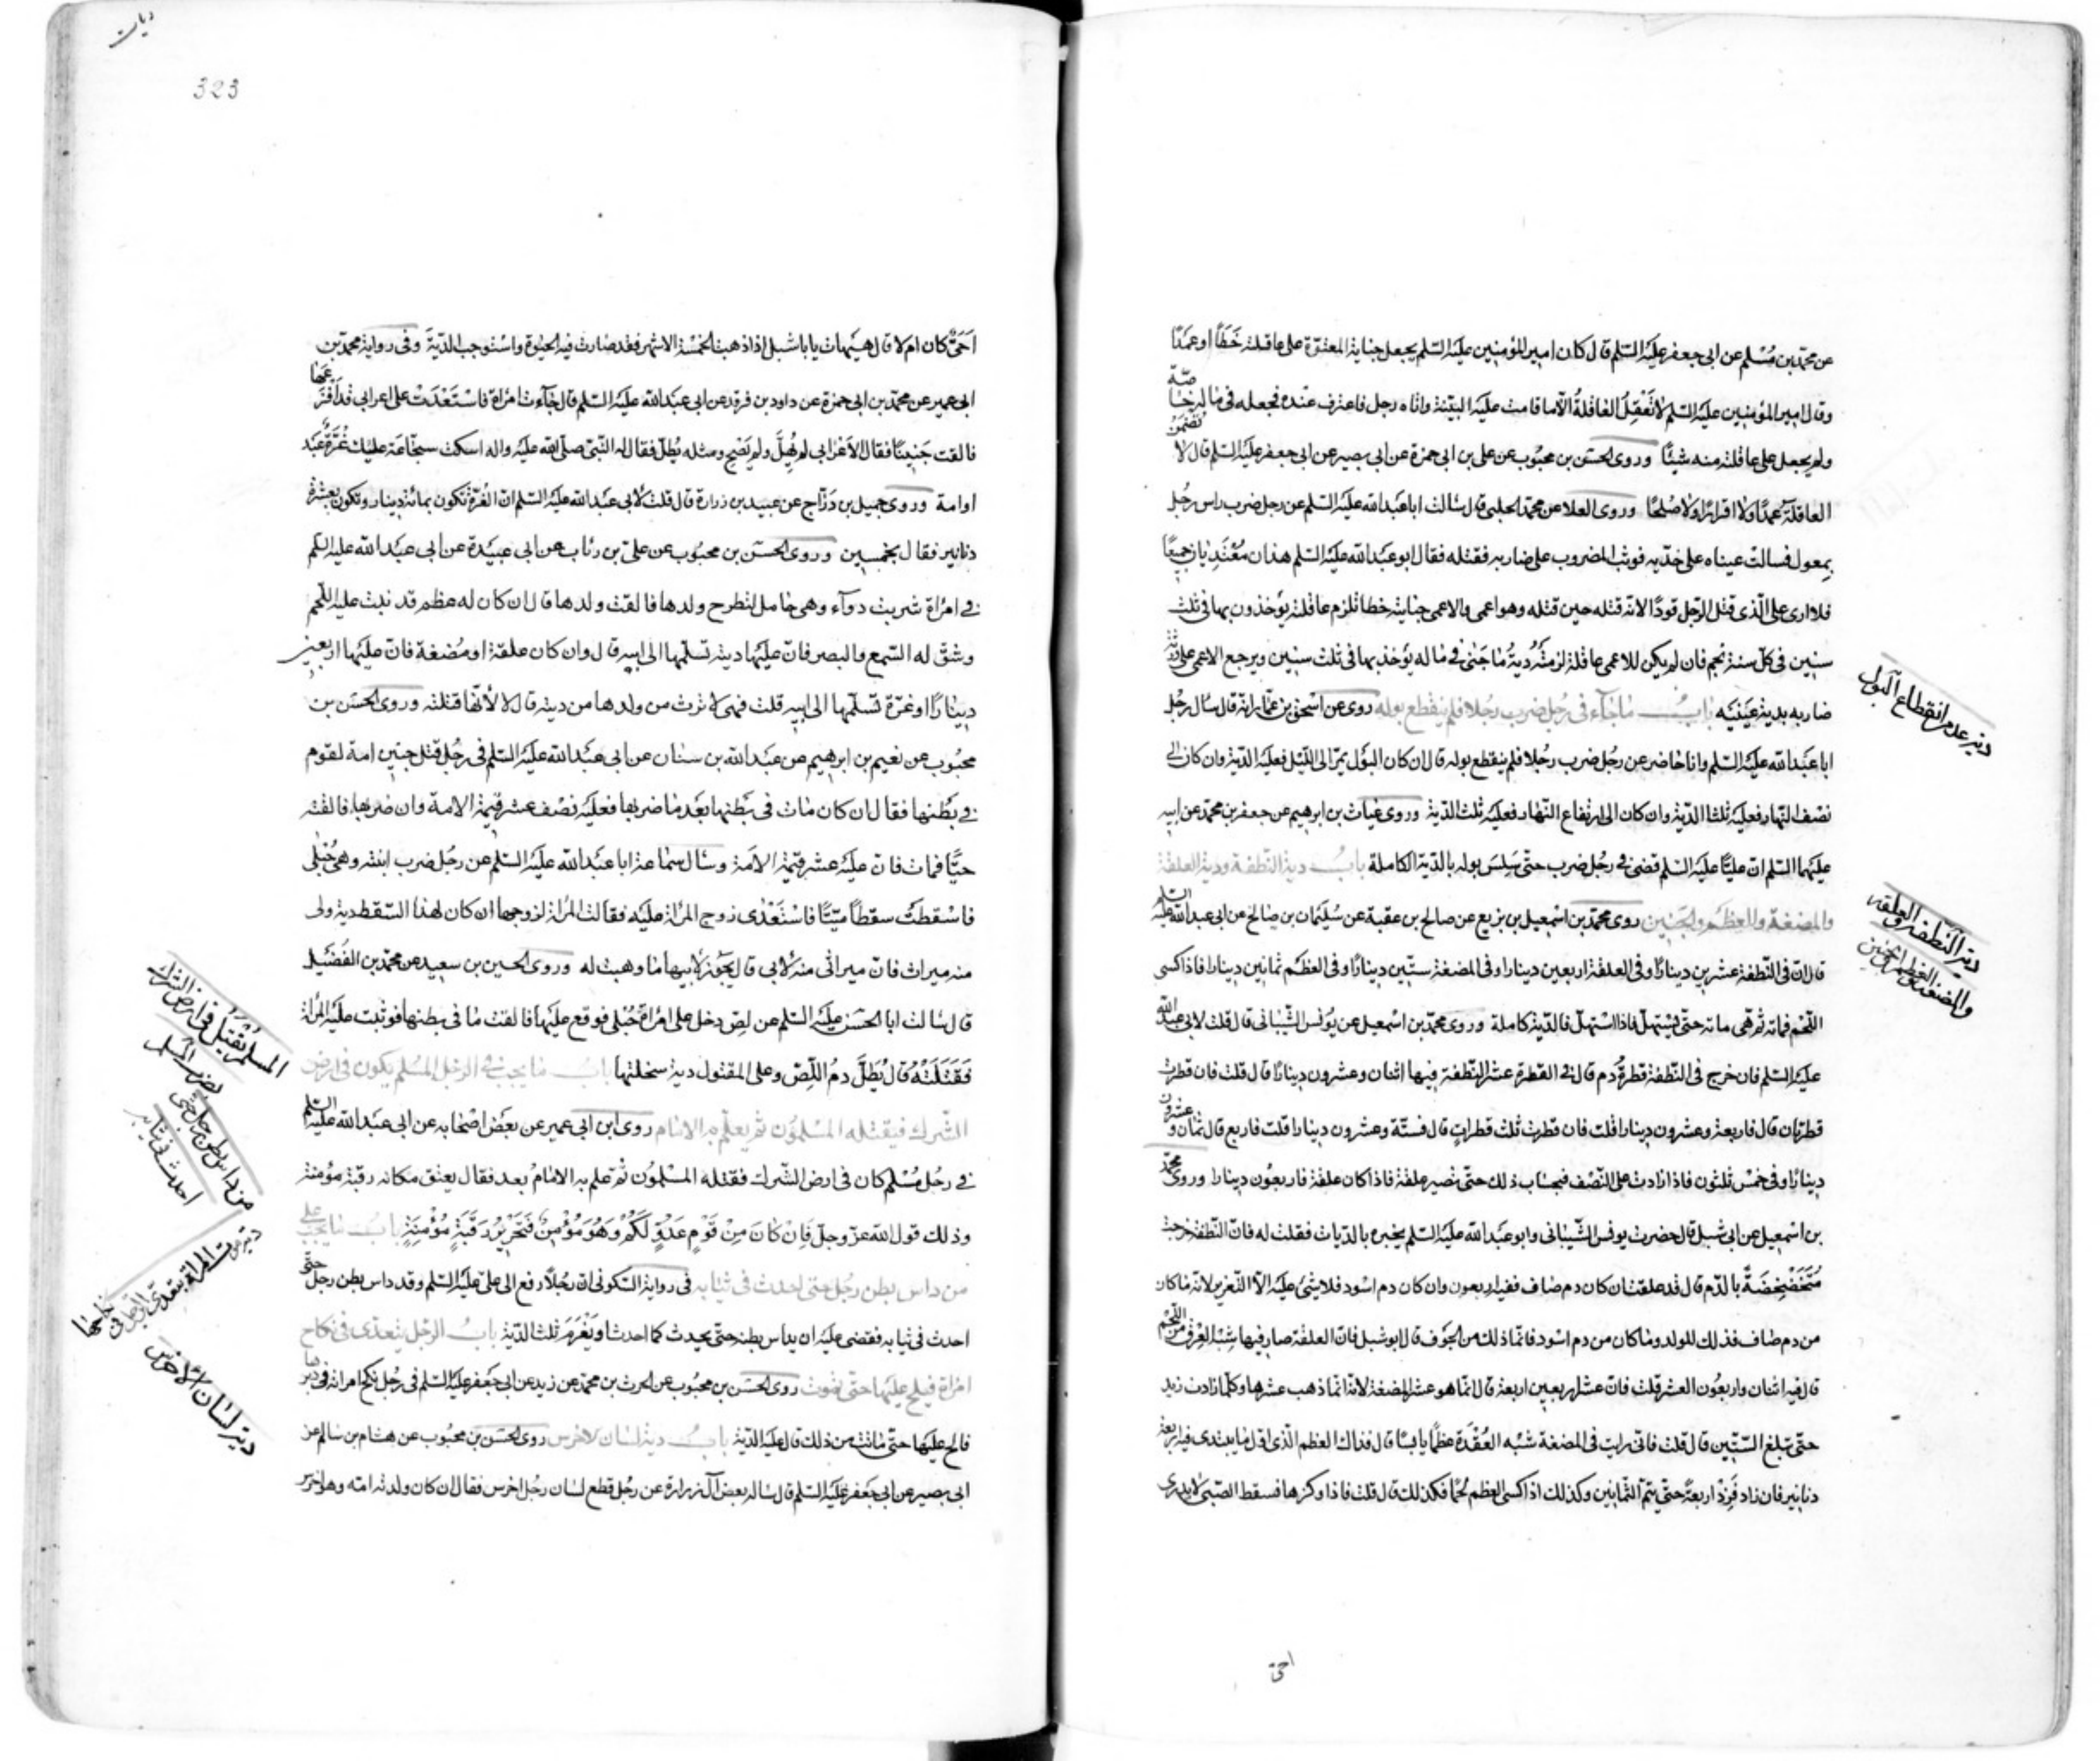 عن محمد بن مُسْلم عن ابى جعفر عليه السّلم قال كان امير المؤمنين عليه السّلم يجعل جناية المعتوه على عاقلته خَطَأً او عَمَدًا
وقال امير المؤمنين عليه السّلم لا تَعْقِلُ العاقلةُ الّا ما قامت عليه البيّنة واتاه رجل فاعترف عنده فجعله فى ماله خاصّة
ولم يجعل على عاقلته منه شيئًا وروى الحسَن بن محبُوب عن على بن ابى حمزة عن ابى بصير عن ابى جعفر عليه السّلم قال لا تضمن
العاقلة عمدًا ولا اقرارًا ولا صُلحًا وروى العلا عن محمّد الحلبى قال سالت ابا عَبدالله عليه السّلم عن رجل ضرب راس رجُل
بِمعول فسالت عيناه على خدّيه فوثب المضروب على ضاربه فقتله فقال ابو عَبدالله عليه السّلم هذان مُعْتَدِيان جميعًا
فلا ارى على الّذى قتل الرّجل قودًا لانّه قتله حين قتله وهو اعمى والاعمى جنايته خطا تلزم عاقلته يؤخذون بها فى ثلث
سنين فى كلّ سنة نجم فان لم يكن للاعمى عاقلة لزمته دية ما جنى فى ماله يؤخذ بها فى ثلث سنين ويرجع الاعمى على ورثة
ضاربه بدية عينيه بابُ ما جآء فى رجُل ضرب رجُلا فلم ينقطع بوله روى عن اسْحق بن عمّار انه قال سال رجُل
ابا عَبدالله عليه السّلم وانا حاضر عن رجُل ضرب رجُلا فلم ينقطع بوله قال ان كان البوْل يمرّ الى اللّيل فعليه الدّية وان كان الى
نصْف النّهار فعليه ثلثا الدّية وان كان الى ارتفاع النّهار فعليه ثلث الدّية وروى غياث بن ابرهيم عن جعفر بن محمّد عن ابيه
عليهما السّلم انّ عليًّا عليه السّلم قضى فى رجُل ضرب حتّى سَلِسَ بوله بالدّية الكاملة بابُ دية النّطفة ودية العلقة
والمضغة والعظم والجَنين روى محمّد بن اسْمعيل بن بزيع عن صالح بن عقبة عن سُليمان بن صالح عن ابى عبدالله عليه السّلم
قال انّ فى النّطفة عشرين دينارًا وفى العلقة اربعين دينارا وفى المضغة ستّين دينارًا وفى العظم ثمانين دينارا فاذا كسى
اللّحْم فمائة ثم هى مائة حتّى يَسْتهلّ فاذا اسْتهلّ فالدّية كاملة وروى محمّد بن اسمعيل عن يوُنس الشّيبانى قال قلت لابى عبدالله
عليه السّلم فان خرج فى النّطفة قطرةُ دم قال فى القطرة عشر النّطفة فيها اثنان وعشرون دينارًا قال قلت فان قطرت
قطرتان قال فاربعة وعشرون دينارا قلت فان قطرت ثلث قطراتٍ قال فستّة وعشرون دينارا قلت فاربع قال ثمان وعشرون
دينارًا وفى خمْس ثلثون فاذا زادت على النّصْف فبحساب ذلك حتّى تصير علقة فاذا كان علقة فاربعوُن دينارا وروى محمّد
بن اسْمعيل عن ابى شبل قال حضرت يونس الشّيبانى وابو عبدالله عليه السّلم يخبره بالدّيات فقلت له فانّ النّطفة خرجت
مُتَخَضْخِضَةً بالدّم قال قد علقت ان كان دم صاف ففيها اربعون وان كان دم اسود فلا شىءَ عليه الّا التّعزير لانه ما كان
من دم صاف فذلك للولد وما كان من دم اسود فانّما ذلك من الجَوف قال ابو شبل فانّ العلقة صار فيها شِبْه العِرْق من اللّحم
قال فيه اثنان واربعوُن العشر قلت فانّ عشر اربعين اربعة قال انّما هو عشر المضغة لانّه انّما ذهب عشرها وكلّما زادت زيد
حتّى تبلغ السّتّين قال قلت فانّى رايت فى المضغة شبْه العُقْدَة عظمًا يابسًا قال فذاك العظم الّذى اوّل ما يبتدى فيه اربعة
دنانير فان زاد فَزِدْ اربعةً حتّى يتمّ الثّمانين وكذلك اذا كسى العظم لحْمًا فكذلك قال قلت فاذا وكزها فسقط الصّبىّ لا يدرى
دية عدم انقطاع البول
دية النّطفة والعلقه
والمضغة والعظم والجنين
احىّ
ديات
323
اَحَىٌّ كان ام لا قال هيهات يا ابا شبل اذا ذهبت الخمسْة الاشهر فقد صارت فيه الحيوة واسْتوجب الدّيةَ وفى رواية محمّد بن
ابى عمير عن محمّد بن ابى حمزة عن داود بن فرقد عن ابى عبدالله عليه السّلم قال جآءت امراة فاسْتعْدَتْ على اعرابى قد اَفْزَعَها
فالقت جَنينًا فقال الاَعْرابى لم يُهِلَّ ولم يَصِحْ ومثله يُطلّ فقال له النّبىّ صلّى الله عليه واله اسكت سجّاعة عليك غُرَّةٌ عَبْد
او امة وروى جميل بن دَرّاج عن عبيد بن زرارة قال قلت لابى عبدالله عليه السّلم انّ الغُرّة تكون بمائة دينار وتكون بعشرة
دنانير فقال بخمسين وروى الحسَن بن محبُوب عن علىّ بن رئاب عن ابى عبيدة عن ابى عبدالله عليه السّلم
فى امراة شربت دوآء وهى حامل لتطرح ولدها فالقت ولدها قال ان كان له عظم قد نبت عليه اللّحم
وشقّ له السّمع والبصر فانّ عليها دية تسلّمها الى ابيه قال وان كان علقة او مُضغة فانّ عليها اربعين
دينارًا او غرّة تسلّمها الى ابيه قلت فهى لا ترث من ولدها من ديته قال لا لأنّها قتلته وروى الحسَن بن
محبُوب عن نعيم بن ابرهيم عن عبدالله بن سنان عن ابى عبدالله عليه السّلم فى رجُل قتل جنين امة لقوم
فى بطنها فقال ان كان مات فى بطنها بعد ما ضربها فعليه نصْف عشر قيمة الامة وان ضربها فالقته
حيًّا فمات فانّ عليه عشر قيمة الامَة وسال سماعة ابا عبدالله عليه السّلم عن رجُل ضرب ابنته وهى حُبْلى
فاسْقطتْ سقطًا ميّتًا فاسْتَعْدى زوج المراة عليه فقالت المراة لزوجها ان كان لهذا السّقط دية ولى
منه ميراث فانّ ميراثى منه لأبى قال يجوز لابيها ما وهبت له وروى الحسين بن سعيد عن محمّد بن الفضيل
قال سالت ابا الحسَن عليه السّلم عن لصّ دخل على امراة حُبْلى فوقع عليها فالقت ما فى بطنها فوثبت عليه المراة
فَقَتَلَتْهُ قال يُطَلُّ دمُ اللّصّ وعلى المقتول دية سخلتها بابُ ما يجب فى الرجُل المُسْلم يكون فى ارض
الشّرك فيقتله المسْلمُون ثم يعلم به الامام روى ابن ابى عمير عن بعْض اصْحابه عن ابى عبدالله عليه السّلم
فى رجُل مُسْلم كان فى ارض الشّرك فقتله المسْلموُن ثمّ علم به الامامُ بعد فقال يعتق مكانه رقبة مؤمنة
وذلك قول الله عزّ وجلّ فَاِنْ كانَ مِنْ قَوْمٍ عَدُوٍّ لَكُمْ وَهُوَ مُؤْمِنٌ فَتَحْرِيْرُ رَقَبَةٍ مُؤْمِنَةٍ بابُ ما يجب على
من داس بطن رجُل حتى احدث فى ثيابه فى رواية السّكونى انّ رجُلاً رفع الى علىّ عليه السّلم وقد داس بطن رجل حتّى
احدث فى ثيابه فقضى عليه ان يداس بطنه حتّى يحدث كما احدث او يَغْرَمَ ثلث الدّية بابُ الرّجل يتعدّى فى نكاح
امراة فيلح عليها حتّى تموت روى الحَسَن بن محبُوب عن الحرث بن محمّد عن زيد عن ابى جعفر عليه السّلم فى رجُل نكح امراة فى دبرها
فالح عليها حتّى ماتت من ذلك قال عليه الدّية بابُ دية لسان الاخرس روى الحسَن بن محبُوب عن هشام بن سالم عن
ابى بصير عن ابى جعفر عليه السّلم قال ساله بعض آل زرارة عن رجُل قطع لسان رجُل اخرس فقال ان كان ولدته امّه وهو اخرس
المسلم يُقتل فى ارض الشرك
من داس بطن رجل حتى
احدث فى ثيابه
دية لسان الأخرس